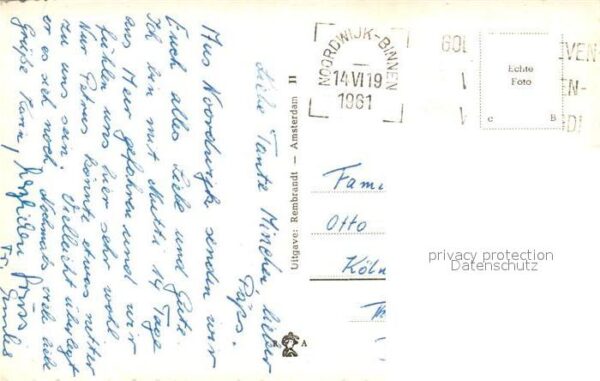 Liebe Tante Minchen, lieber
Paps.
Aus Noordwijk senden wir
Euch alles Liebe und Gute.
Ich bin mit Mutti 14 Tage
ans Meer gefahren und wir
fühlen uns hier sehr wohl
Nur Petrus könnte etwas netter
zu uns sein. Vielleicht überlegt
er es sich noch. Nochmals viele liebe
Grüße Karin, herzlichen Gruss
NOORDWIJK-BINNEN
14 VI 19
1961
GOL VEN
EN-
DI
Echte
Foto
C B
Uitgave: Rembrandt — Amsterdam II
R A
Fam
Otto
Köln
privacy protection
Datenschutz